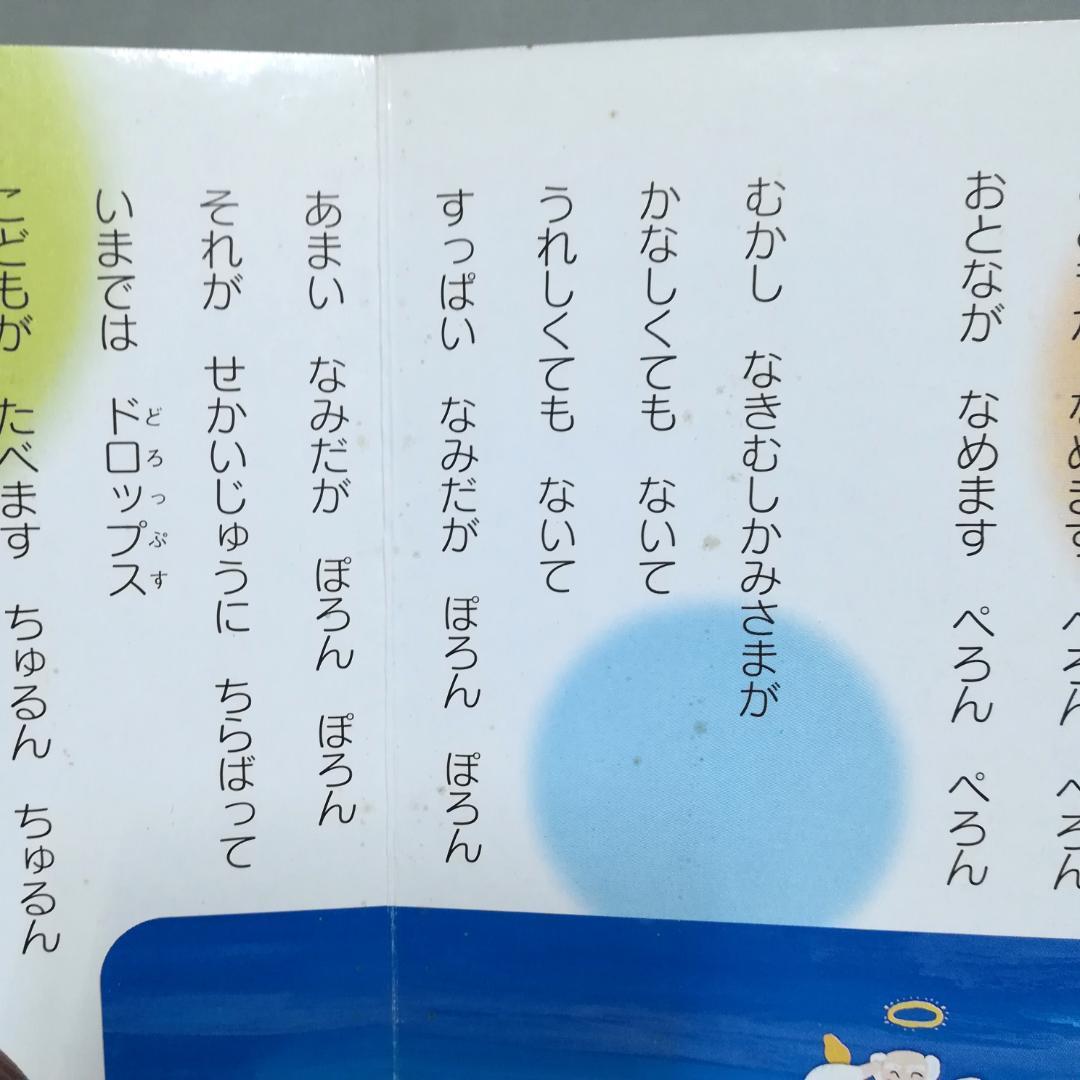 おとなが　なめます　ぺろん　ぺろん
むかし　なきむしかみさまが
かなしくても　ないて
うれしくても　ないて
すっぱい　なみだが　ぽろん　ぽろん
あまい　なみだが　ぽろん　ぽろん
それが　せかいじゅうに　ちらばって
いまでは　ドロップス
どろっぷす
こどもが　たべます　ちゅるん　ちゅるん